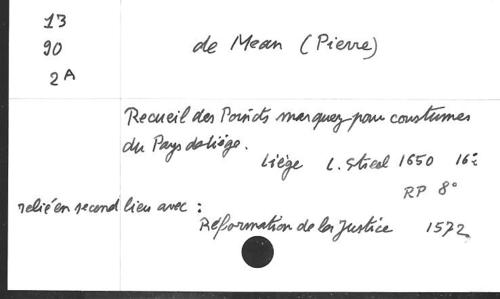 13
90
2A
de Mean (Pierre)
Recueil des Points marquez pour coustumes
du Pays de liége.
Liége L. Streel 1650 16:
RP 8°
relié en second lieu avec :
Réformation de la Justice 1572